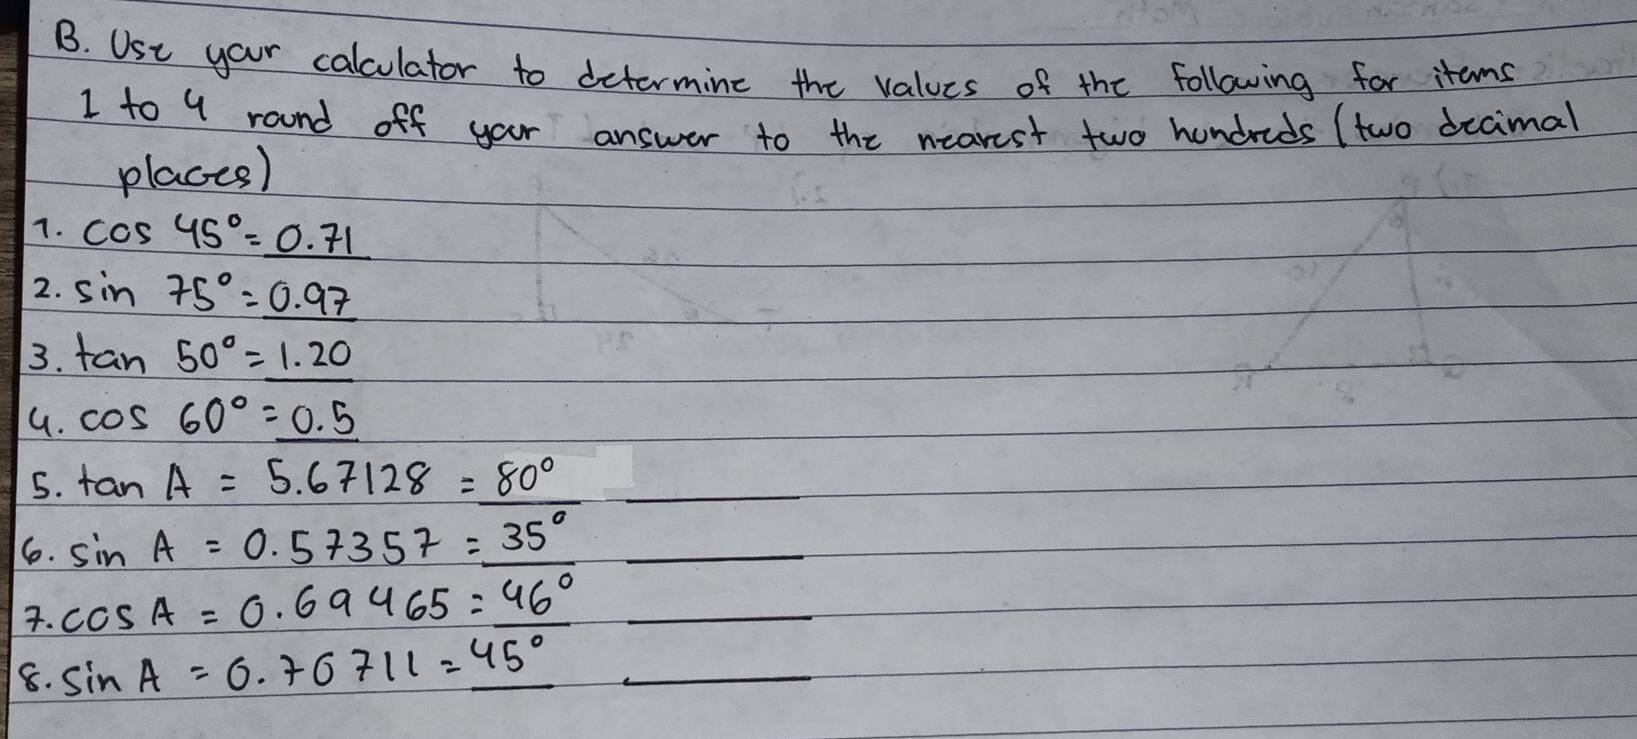 B. Use your calculator to determine the values of the following for items
1 to 4 round off your answer to the nearest two hundreds (two decimal
places)
1. cos 45° = 0.71
2. sin 75° = 0.97
3. tan 50° = 1.20
4. cos 60° = 0.5
5. tan A = 5.67128 = 80°
6. sin A = 0.57357 = 35°
7. cos A = 0.69465 = 46°
8. sin A = 0.70711 = 45°